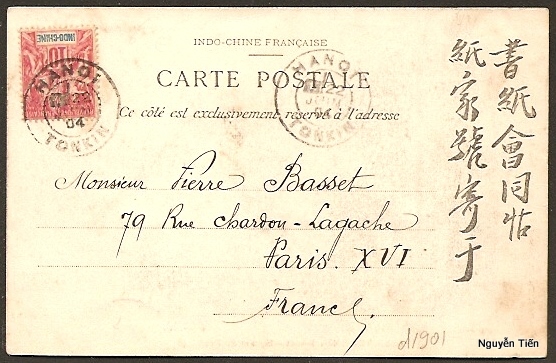 INDO-CHINE
10
INDO-CHINE FRANÇAISE
CARTE POSTALE
Ce côté est exclusivement réservé à l'adresse
HANOI
22
04
TONKIN
HANOI
22
JUIN
04
TONKIN
Monsieur Pierre Basset
79 Rue Chardon-Lagache
Paris. XVI
France
書紙會同帖
紙家號寄于
d1901
Nguyễn Tiến